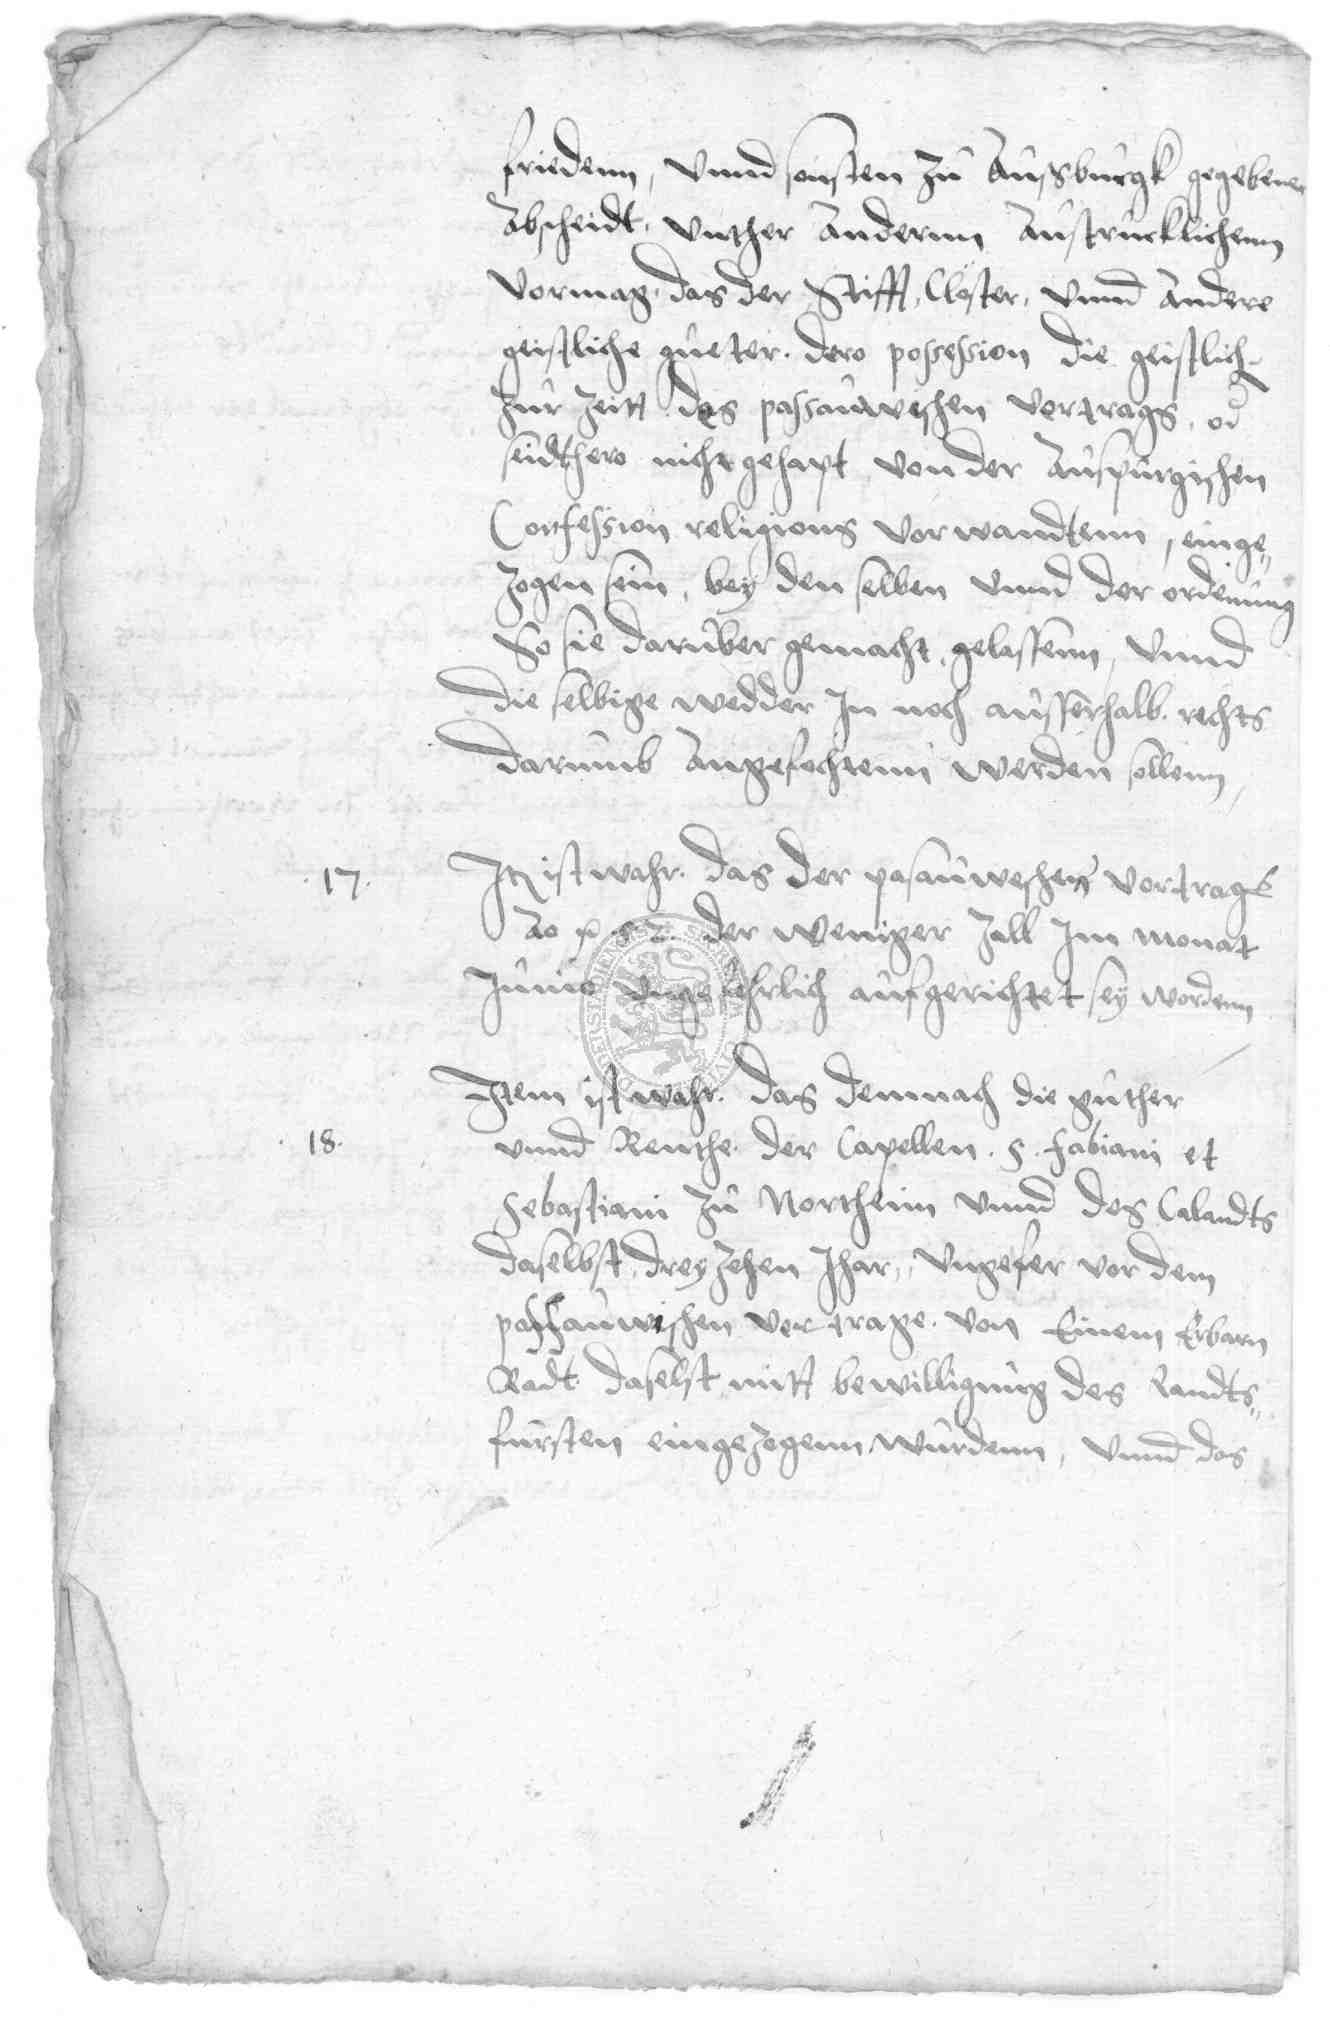 friedenn, vnnd sonsten zu Aussburgk gegebener
Abscheidt, vnther Anderenn Austrucklichenn
vormag, das der Stifft, Closter, vnnd Andere
geistliche gueter, dero possession die geistlich
zur Zeitt des passauwischen vertrags, od
seidthero nicht gehapt, von der Auspurgischen
Confession religions vorwandtenn, einge-
zogen sein, bey den selben vnnd der ordenung
So sie daruber gemacht, gelassenn, vnnd
die selbige wedder In noch ausserhalb rechts
darumb Angefochtenn werden sollenn,
.17. Itz ist wahr. das der pasauweschen vortrag
Ao 52. der weniger Zall Im monat
Junio vngefehrlich aufgerichtet sey wordenn
Item ist wahr. das demnach die guther
.18. vnnd Renthe. der Capellen. S. Fabiani et
Sebastiani zu Northeim vnnd des Calandts
daselbst, dreyzehen Jhar, vngefer vor dem
passauwischen vertrage. von Einem Erbarn
Radt daselbst mitt bewilligung des Landts-
fursten eingezogenn wurdenn, vnnd das